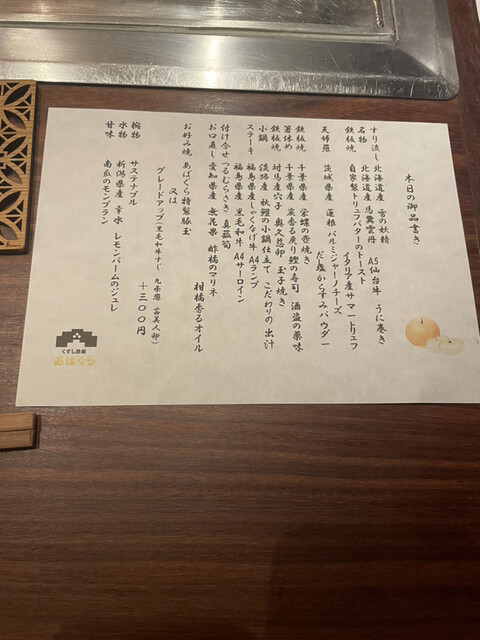 本日の御品書き
すり流し 北海道産 雪の妖精 A5仙台牛 うに巻き
名物 北海道産 馬糞雲丹 イタリア産サマートリュフ
鉄板焼 自家製トリュフバターのトースト
天婦羅 茨城県産 蓮根 パルミジャーノチーズ
だし塩からすみパウダー
鉄板焼 千葉県産 栄螺の壺焼き
箸休め 千葉県産 炭香る戻り鰹の寿司 酒盗の薬味
鉄板焼 対馬産穴子 奥久慈卵 玉子焼き
小鍋 淡路産 秋鱧の小鍋仕立て こだわりの出汁
ステーキ 福島県産 しゃくなげ牛 A4ランプ
福島県産 黒毛和牛 A4サーロイン
付け合せ つるむらさき 真菰筍
お口直し 愛知県産 無花果 酢橘のマリネ
柑橘香るオイル
お好み焼 あばぐら特製豚玉
又は
グレードアップ(黒毛和牛すじ 九条葱 富美人卵)
+300円
椀物 サステナブル
水物 新潟県産 幸水 レモンバームのジュレ
甘味 南瓜のモンブラン
くずし鉄板
あばぐら